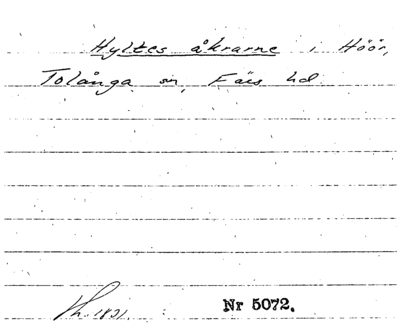 Hyltes åkrarne i Höör,
Tolånga sn, Färs hd
Lh. 1831. Nr 5072.